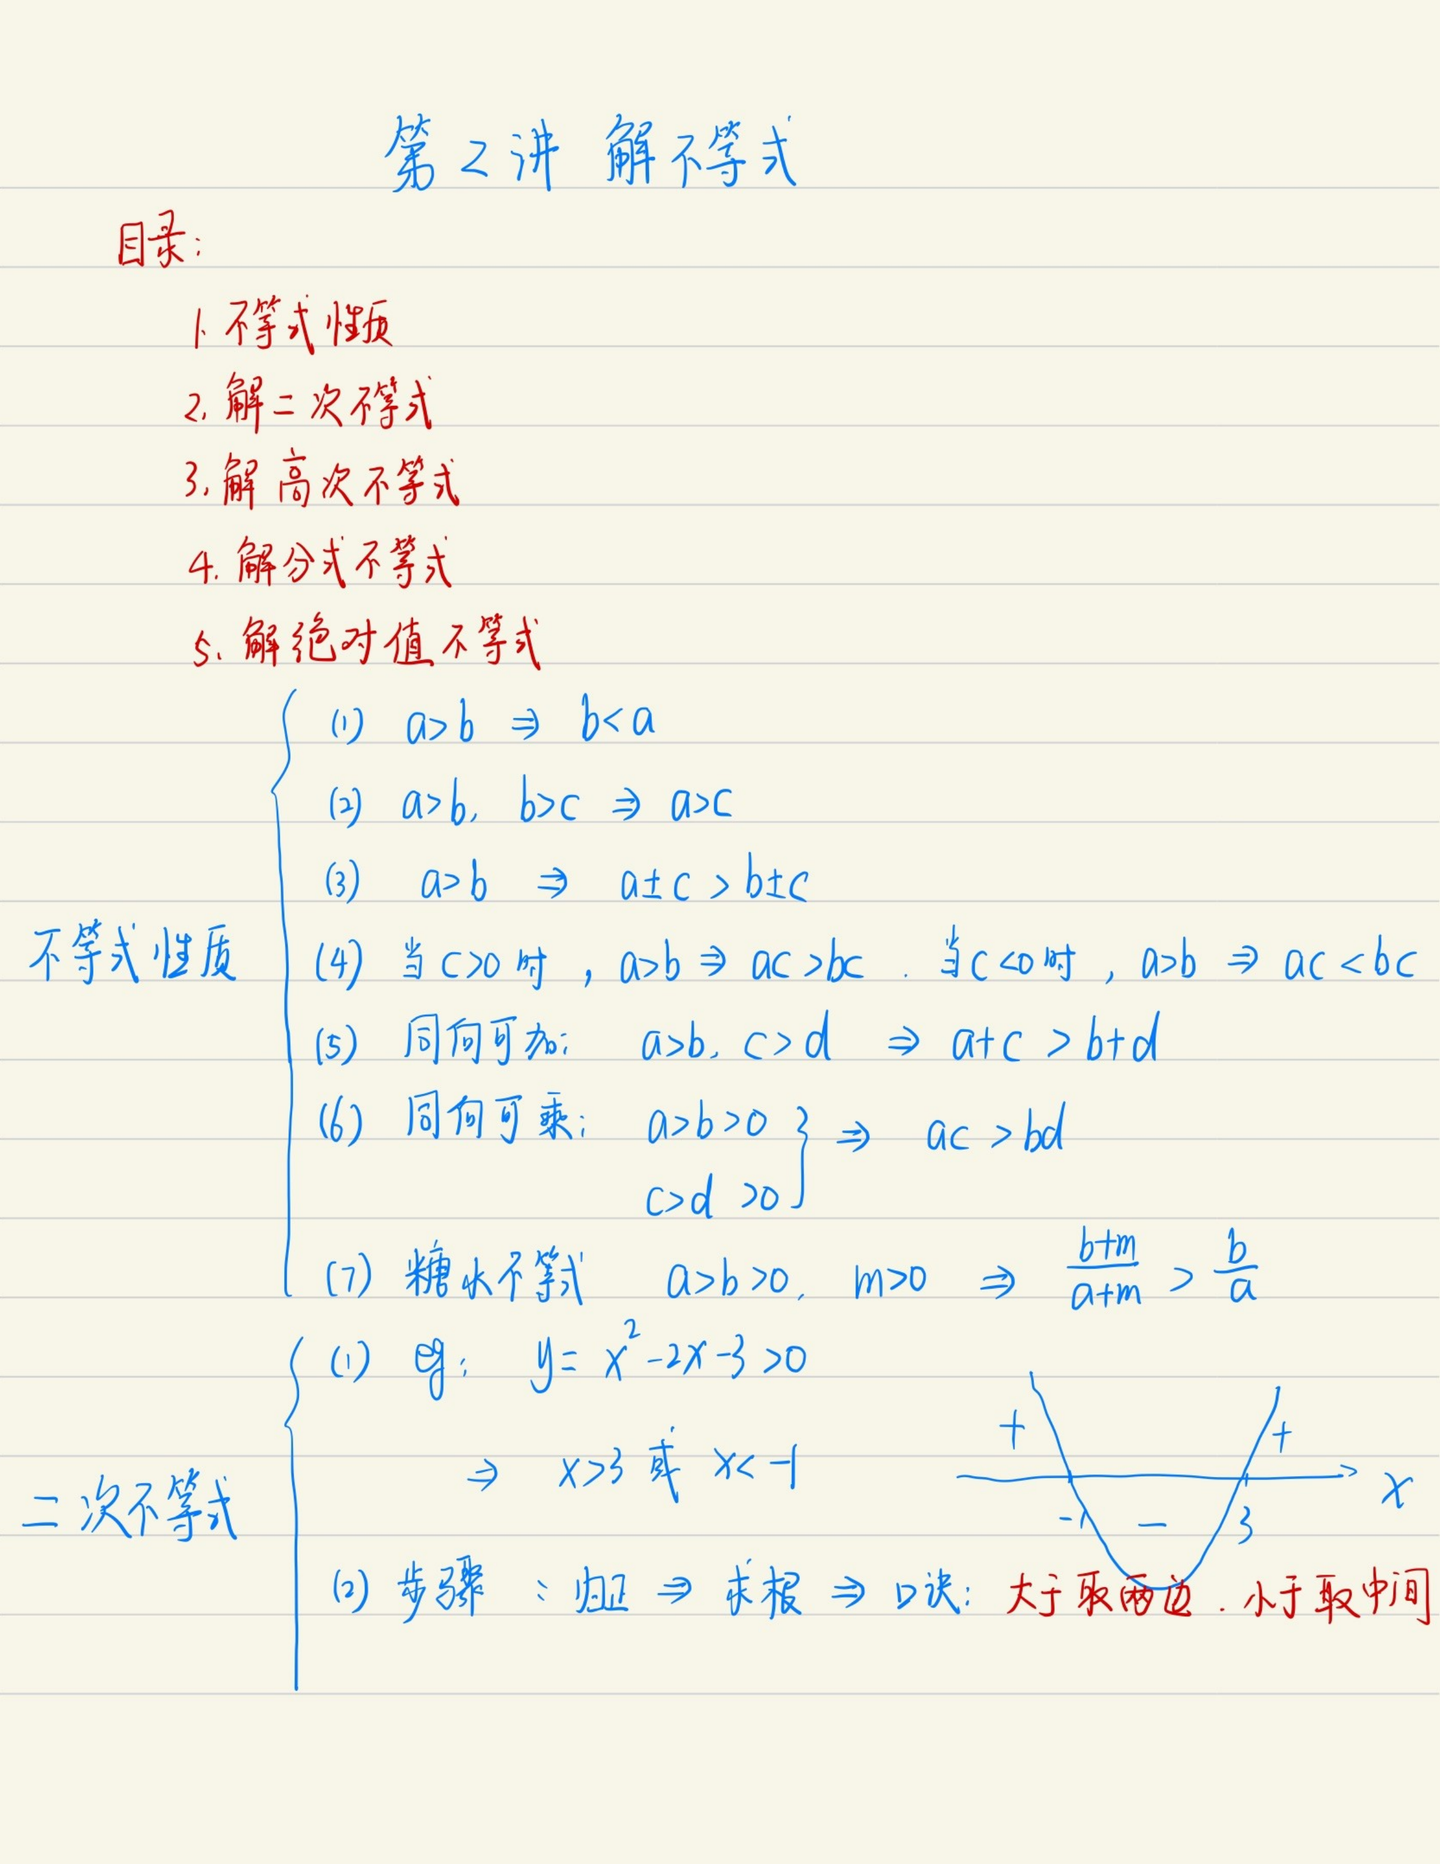 第2讲 解不等式
目录:
1. 不等式性质
2. 解二次不等式
3. 解高次不等式
4. 解分式不等式
5. 解绝对值不等式
不等式性质
(1) a>b ⇒ b<a
(2) a>b, b>c ⇒ a>c
(3) a>b ⇒ a±c > b±c
(4) 当c>0时, a>b ⇒ ac>bc. 当c<0时, a>b ⇒ ac<bc
(5) 同向可加: a>b, c>d ⇒ a+c > b+d
(6) 同向可乘: a>b>0 } ⇒ ac > bd
c>d >0
(7) 糖水不等式 a>b>0, m>0 ⇒ (b+m)/(a+m) > b/a
二次不等式
(1) eg: y= x²-2x-3>0
⇒ x>3 或 x<-1
+ +
-1 − 3 x
(2) 步骤: 归正 ⇒ 求根 ⇒ 口诀: 大于取两边. 小于取中间